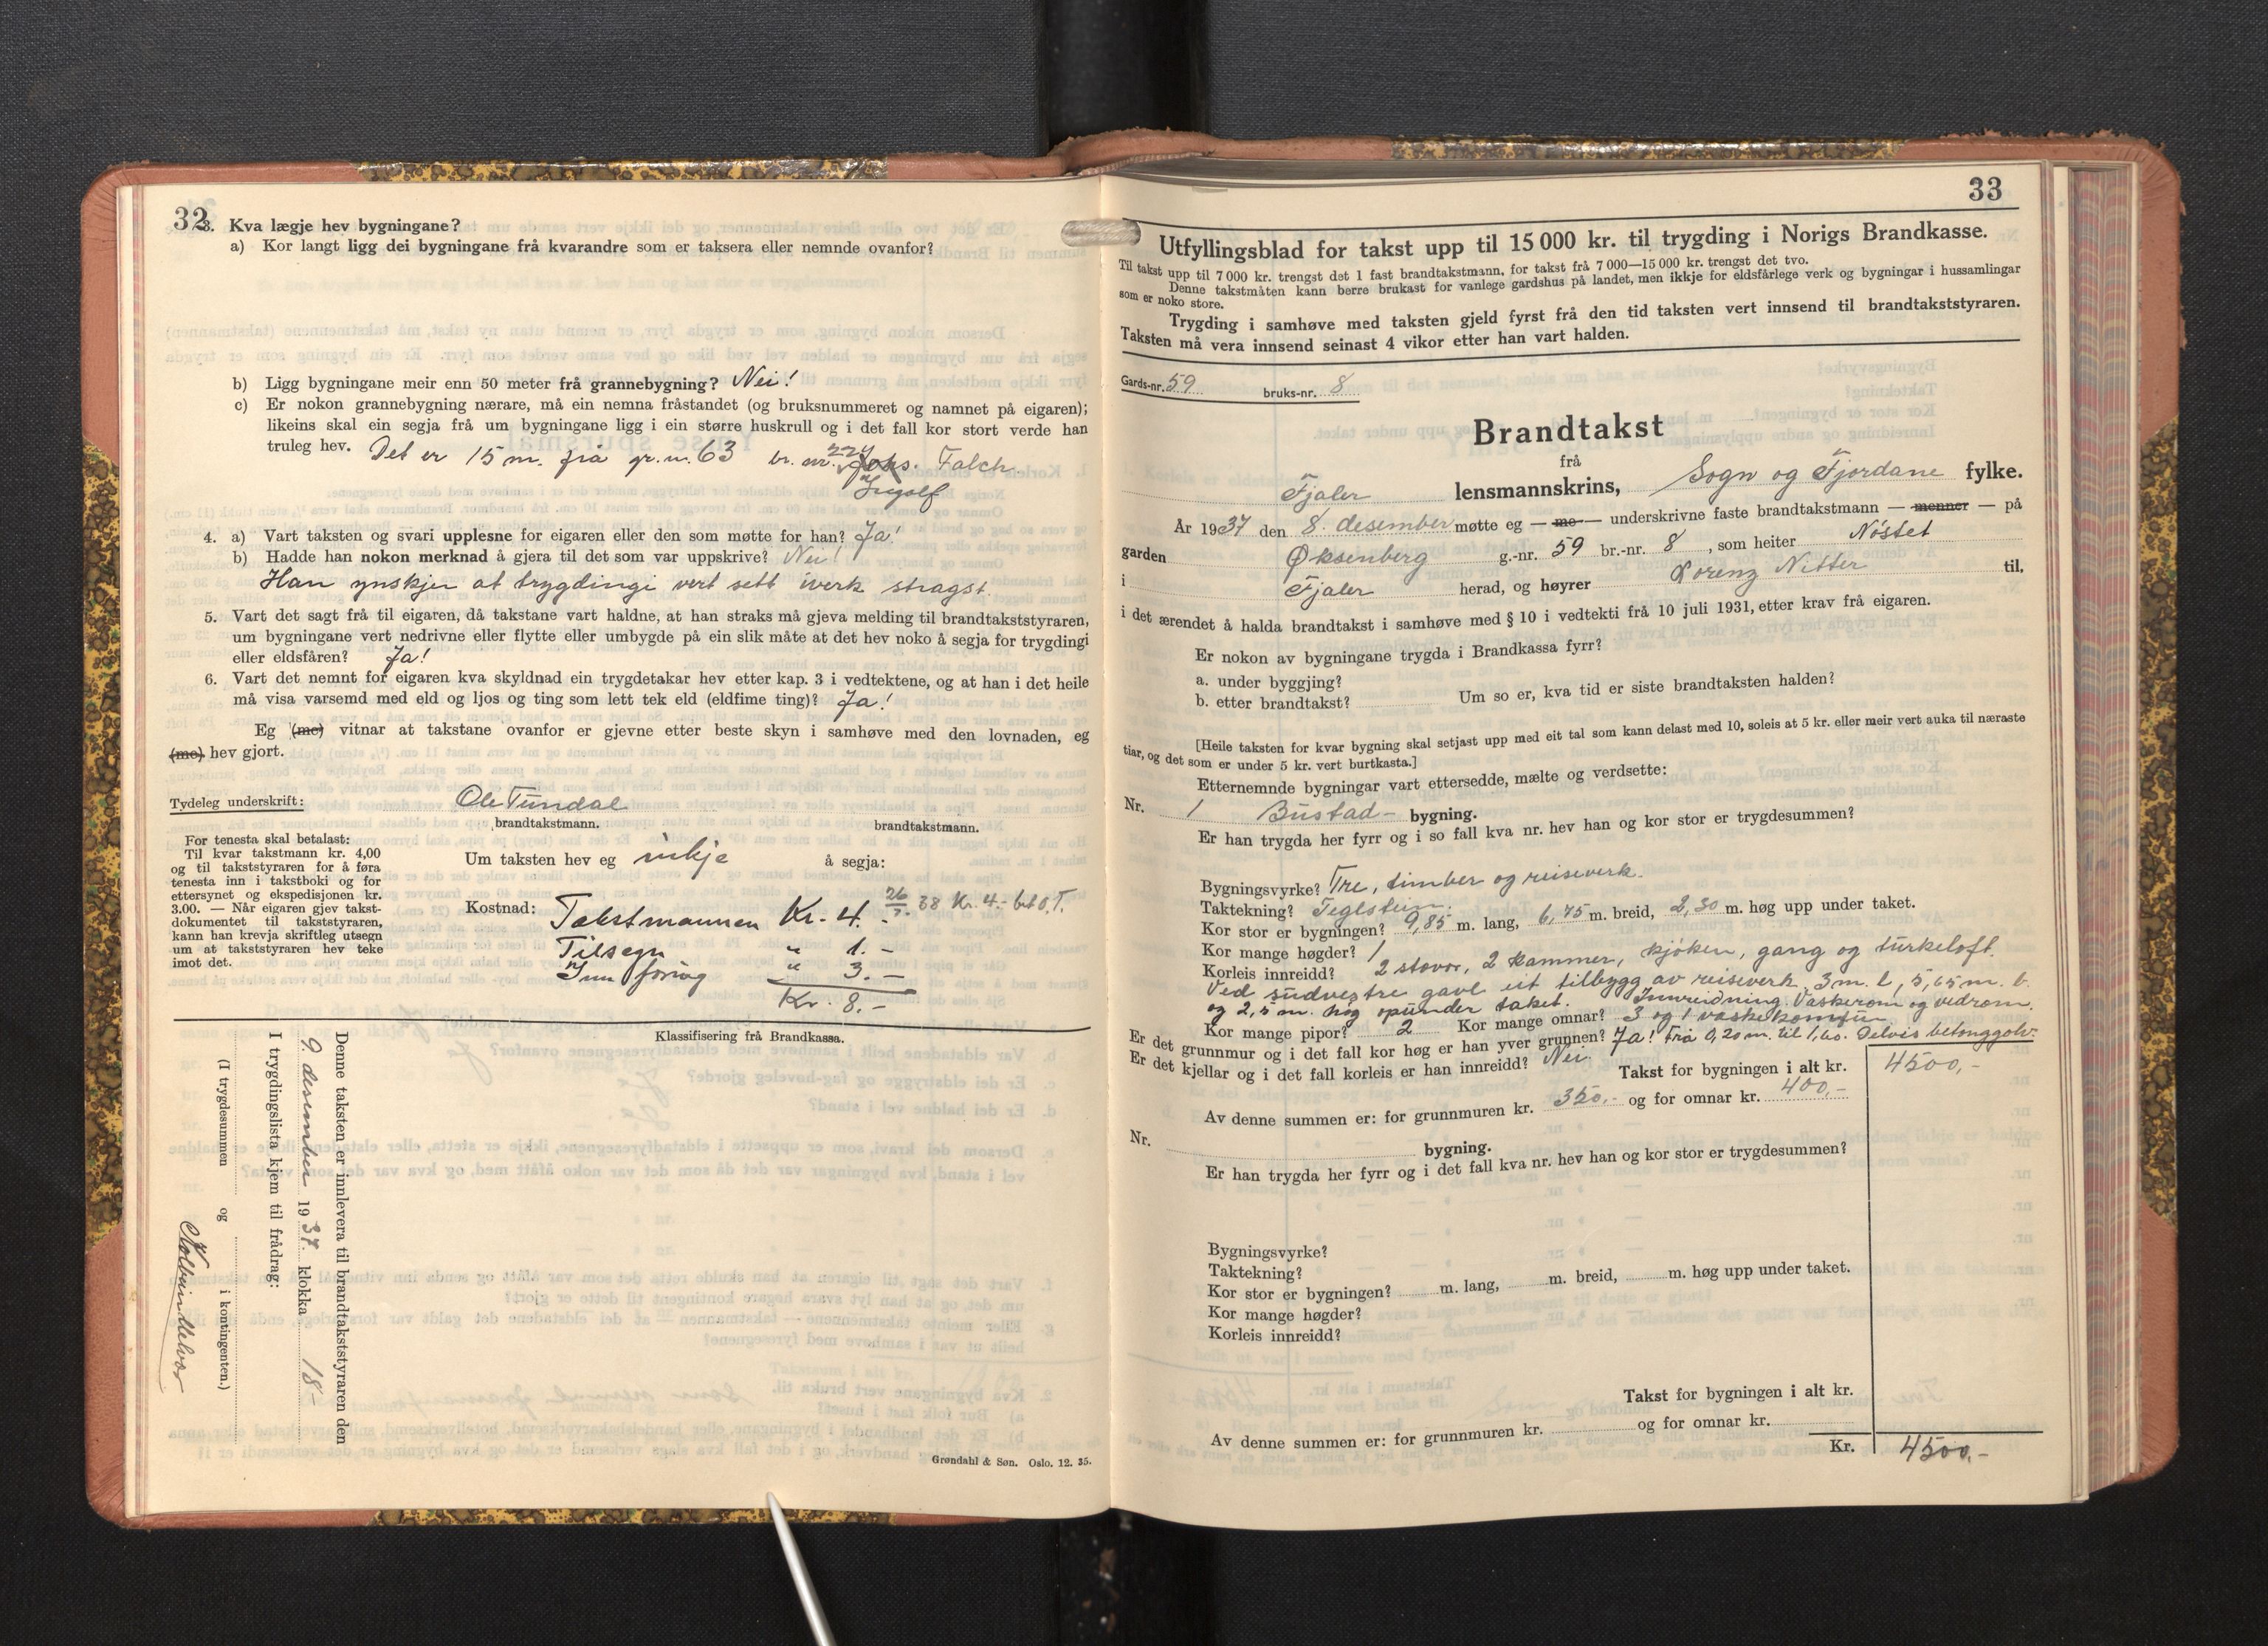 32
3. Kva lægje hev bygningane?
a) Kor langt ligg dei bygningane frå kvarandre som er taksera eller nemnde ovanfor?
b) Ligg bygningane meir enn 50 meter frå grannebygning? Nei!
c) Er nokon grannebygning nærare, må ein nemna fråstandet (og bruksnummeret og namnet på eigaren);
likeins skal ein segja frå um bygningane ligg i ein større huskrull og i det fall kor stort verde han
truleg hev. Det er 15 m. frå gr. n. 63 br. nr. Falch
Ingolf
4. a) Vart taksten og svari upplesne for eigaren eller den som møtte for han? Ja!
b) Hadde han nokon merknad å gjera til det som var uppskrive? Nei!
Han ynskjer at trygdingi vert sett iverk stragst.
5. Vart det sagt frå til eigaren, då takstane vart haldne, at han straks må gjeva melding til brandtakststyraren,
um bygningane vert nedrivne eller flytte eller umbygde på ein slik måte at det hev noko å segja for trygdingi
eller eldsfåren? Ja!
6. Vart det nemnt for eigaren kva skyldnad ein trygdetakar hev etter kap. 3 i vedtektene, og at han i det heile
må visa varsemd med eld og ljos og ting som lett tek eld (eldfime ting)? Ja!
Eg (me) vitnar at takstane ovanfor er gjevne etter beste skyn i samhøve med den lovnaden, eg
(me) hev gjort.
Tydeleg underskrift: Ole Tundal
brandtakstmann. brandtakstmann.
For tenesta skal betalast:
Til kvar takstmann kr. 4,00
og til takststyraren for å føra
tenesta inn i takstboki og for
ettersynet og ekspedisjonen kr.
3.00. — Når eigaren gjev takst-
dokumentet til takststyraren,
kann han krevja skriftleg utsegn
um at takststyraren hev teke
imot det.
Um taksten hev eg inkje å segja:
Kostnad: Takstmannen Kr. 4.- 26/7. 38 Kr. 4.- bet O.T.
Tilsegn " 1.-
Inn føring " 3.-
Kr. 8.-
Klassifisering frå Brandkassa.
Denne taksten er innlevera til brandtakststyraren den
9. desember 1937. klokka 18-
I trygdingslista kjem til frådrag:
(I trygdesummen og i kontingenten.)
Grøndahl & Søn. Oslo. 12. 35.
33
Utfyllingsblad for takst upp til 15 000 kr. til trygding i Norigs Brandkasse.
Til takst upp til 7 000 kr. trengst det 1 fast brandtakstmann, for takst frå 7 000—15 000 kr. trengst det tvo.
Denne takstmåten kann berre brukast for vanlege gardshus på landet, men ikkje for eldsfårlege verk og bygningar i hussamlingar
som er noko store.
Trygding i samhøve med taksten gjeld fyrst frå den tid taksten vert innsend til brandtakststyraren.
Taksten må vera innsend seinast 4 vikor etter han vart halden.
Gards-nr. 59 bruks-nr. 8
Brandtakst
frå
Fjaler lensmannskrins, Sogn og Fjordane fylke.
År 1937 den 8. desember møtte eg — me — underskrivne faste brandtakstmann — menner — på
garden Øksenberg g.-nr. 59 br.-nr. 8, som heiter Nøstet
i Fjaler herad, og høyrer Lorenz Nitter til,
i det ærendet å halda brandtakst i samhøve med § 10 i vedtekti frå 10 juli 1931, etter krav frå eigaren.
Er nokon av bygningane trygda i Brandkassa fyrr?
a. under byggjing?
b. etter brandtakst? Um so er, kva tid er siste brandtaksten halden?
[Heile taksten for kvar bygning skal setjast upp med eit tal som kann delast med 10, soleis at 5 kr. eller meir vert auka til næraste
tiar, og det som er under 5 kr. vert burtkasta.]
Etternemnde bygningar vart ettersedde, mælte og verdsette:
Nr. 1 Bustad- bygning.
Er han trygda her fyrr og i so fall kva nr. hev han og kor stor er trygdesummen?
Bygningsvyrke? Tre, timber og reisverk.
Taktekning? Teglstein.
Kor stor er bygningen? 9,85 m. lang, 6,75 m. breid, 2,30 m. høg upp under taket.
Kor mange høgder? 1
Korleis innreidd? 2 stovor, 2 kammer, kjøken, gang og turkeloft.
Ved sudvestre gavl eit tilbygg av reisverk 3 m. l, 5,65 m. b.
og 2,5 m. høg opunder taket. Innreidning. Vaskerom og vedrom.
Kor mange pipor? 2 Kor mange omnar? 3 og 1 vaskekomfur
Er det grunnmur og i det fall kor høg er han yver grunnen? Ja! Frå 0,20 m. til 1,60. Delvis betonggolv.
Er det kjellar og i det fall korleis er han innreidd? Nei.
Takst for bygningen i alt kr. 4500,-
Av denne summen er: for grunnmuren kr. 350.- og for omnar kr. 400,-
Nr. bygning.
Er han trygda her fyrr og i det fall kva nr. hev han og kor stor er trygdesummen?
Bygningsvyrke?
Taktekning?
Kor stor er bygningen? m. lang, m. breid, m. høg upp under taket.
Kor mange høgder?
Korleis innreidd?
Takst for bygningen i alt kr.
Av denne summen er: for grunnmuren kr. og for omnar kr.
Kr. 4500,-